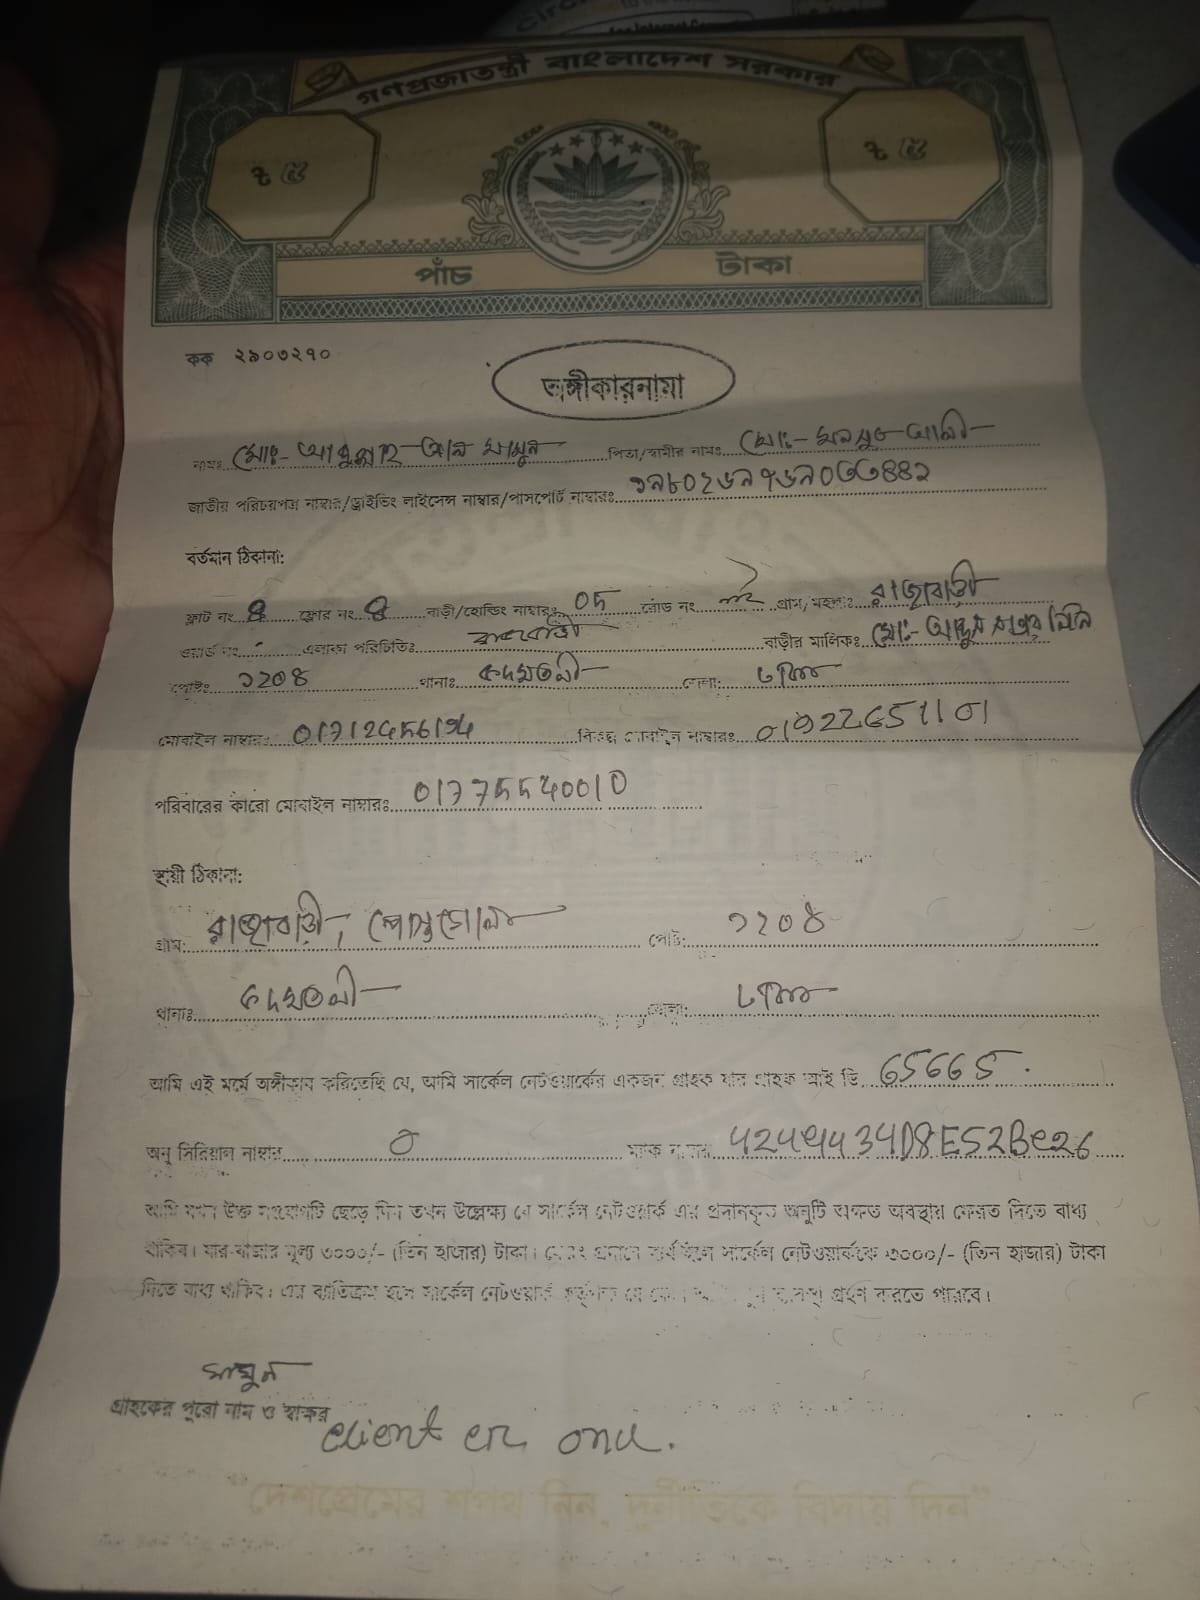 গণপ্রজাতন্ত্রী বাংলাদেশ সরকার
৳ ৫ ৳ ৫
পাঁচ টাকা
কক ২৯০৩২৭০
অঙ্গীকারনামা
নামঃ মোঃ- আব্দুল্লাহ আল মামুন পিতা/স্বামীর নামঃ মোঃ- মনসুর আলী
জাতীয় পরিচয়পত্র নাম্বার/ড্রাইভিং লাইসেন্স নাম্বার/পাসপোর্ট নাম্বারঃ
বর্তমান ঠিকানা:
ফ্লাট নং 8 ফ্লোর নং 8 বাড়ী/হোল্ডিং নাম্বারঃ 05 রোড নং নাই গ্রাম/মহল্লাঃ রাজাবাড়ী
ওয়ার্ড নং এলাকা পরিচিতিঃ রাজাবাড়ী বাড়ীর মালিকঃ মোঃ- আব্দুল
পোষ্টঃ ১২০৪ থানাঃ কদমতলী জেলা: ঢাকা
মোবাইল নাম্বারঃ বিকল্প মোবাইল নাম্বারঃ 01922651101
পরিবারের কারো মোবাইল নাম্বারঃ 01775540010
স্থায়ী ঠিকানা:
গ্রাম: রাজাবাড়ী, পোস্তগোলা পোষ্ট: ১২০৪
থানাঃ কদমতলী জেলা: ঢাকা
আমি এই মর্মে অঙ্গীকার করিতেছি যে, আমি সার্কেল নেটওয়ার্কের একজন গ্রাহক যার গ্রাহক আই ডি 65665.
অনু সিরিয়াল নাম্বার 0 ম্যাক নাম্বার
আমি যখন উক্ত সংযোগটি ছেড়ে দিব তখন উল্লেক্ষ্য যে সার্কেল নেটওয়ার্ক এর প্রদানকৃত অনুটি অক্ষত অবস্থায় ফেরত দিতে বাধ্য
থাকিব। যার বাজার মূল্য ৩০০০/- (তিন হাজার) টাকা। ফেরৎ প্রদানে ব্যর্থ হলে সার্কেল নেটওয়ার্ককে ৩০০০/- (তিন হাজার) টাকা
দিতে বাধ্য থাকিব। এর ব্যতিক্রম হলে সার্কেল নেটওয়ার্ক কর্তৃপক্ষ যে কোন ব্যবস্থা গ্রহণ করতে পারবে।
মামুন
গ্রাহকের পুরো নাম ও স্বাক্ষর
client er onu.
"দেশপ্রেমের শপথ নিন, দুর্নীতিকে বিদায় দিন"